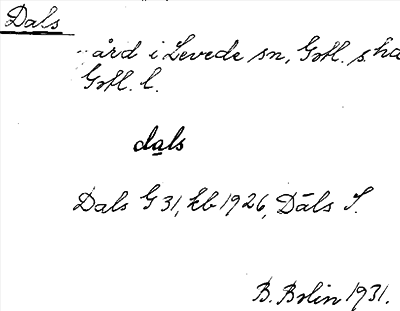 Dals
gård i Levede sn, Gotl. s. hd
Gotl. l.
dals
Dals G 31, kb 1926, Dāls S.
B. Bolin 1931.